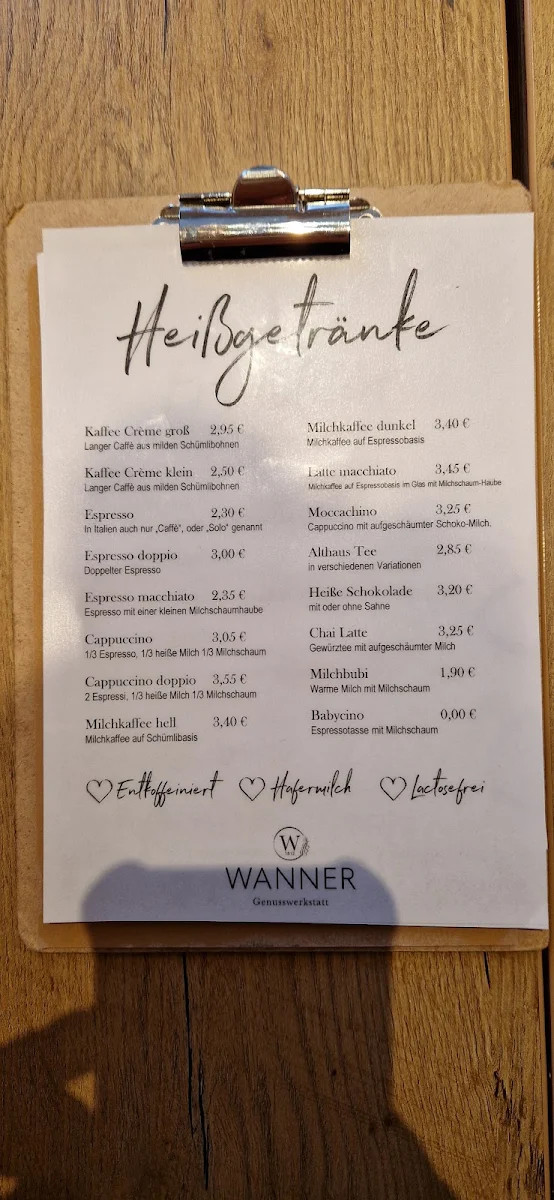 Heißgetränke
Kaffee Crème groß 2,95 €
Langer Caffè aus milden Schümlibohnen
Kaffee Crème klein 2,50 €
Langer Caffè aus milden Schümlibohnen
Espresso 2,30 €
In Italien auch nur „Caffè“, oder „Solo“ genannt
Espresso doppio 3,00 €
Doppelter Espresso
Espresso macchiato 2,35 €
Espresso mit einer kleinen Milchschaumhaube
Cappuccino 3,05 €
1/3 Espresso, 1/3 heiße Milch 1/3 Milchschaum
Cappuccino doppio 3,55 €
2 Espressi, 1/3 heiße Milch 1/3 Milchschaum
Milchkaffee hell 3,40 €
Milchkaffee auf Schümlibasis
Milchkaffee dunkel 3,40 €
Milchkaffee auf Espressobasis
Latte macchiato 3,45 €
Milchkaffee auf Espressobasis im Glas mit Milchschaum-Haube
Moccachino 3,25 €
Cappuccino mit aufgeschäumter Schoko-Milch.
Althaus Tee 2,85 €
in verschiedenen Variationen
Heiße Schokolade 3,20 €
mit oder ohne Sahne
Chai Latte 3,25 €
Gewürztee mit aufgeschäumter Milch
Milchbubi 1,90 €
Warme Milch mit Milchschaum
Babycino 0,00 €
Espressotasse mit Milchschaum
Entkoffeiniert Hafermilch Lactosefrei
W
WANNER
Genusswerkstatt